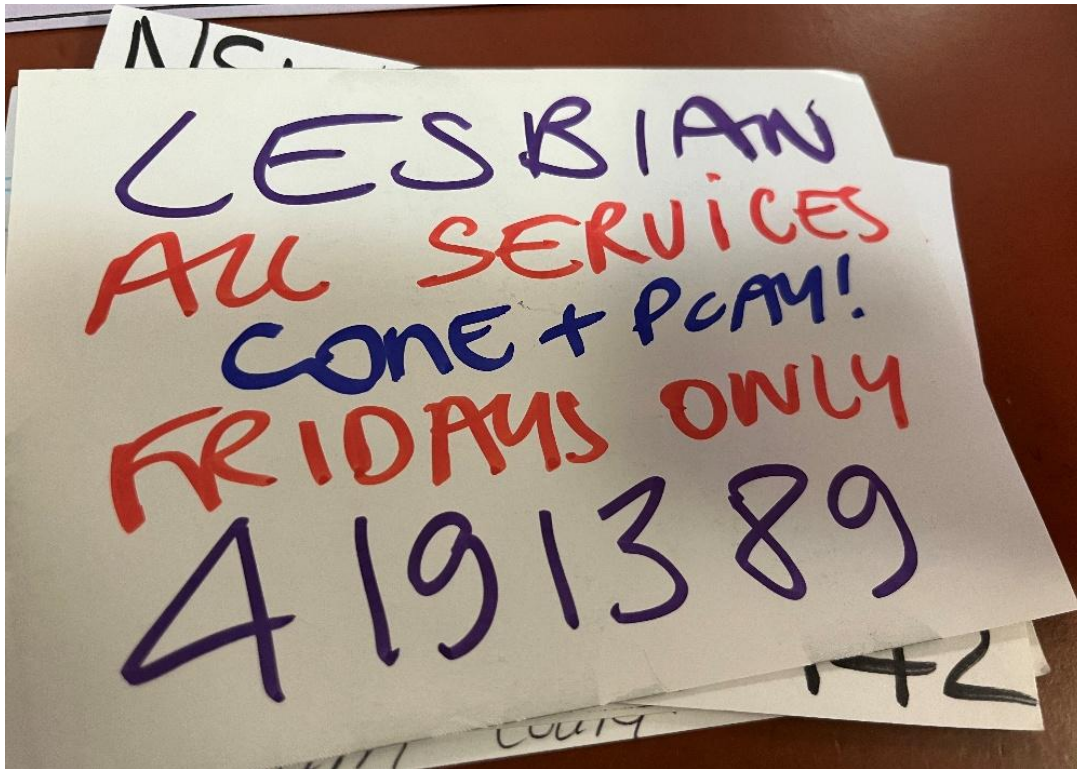 LESBIAN
ALL SERVICES
COME + PLAY!
FRIDAYS ONLY
4191389
42